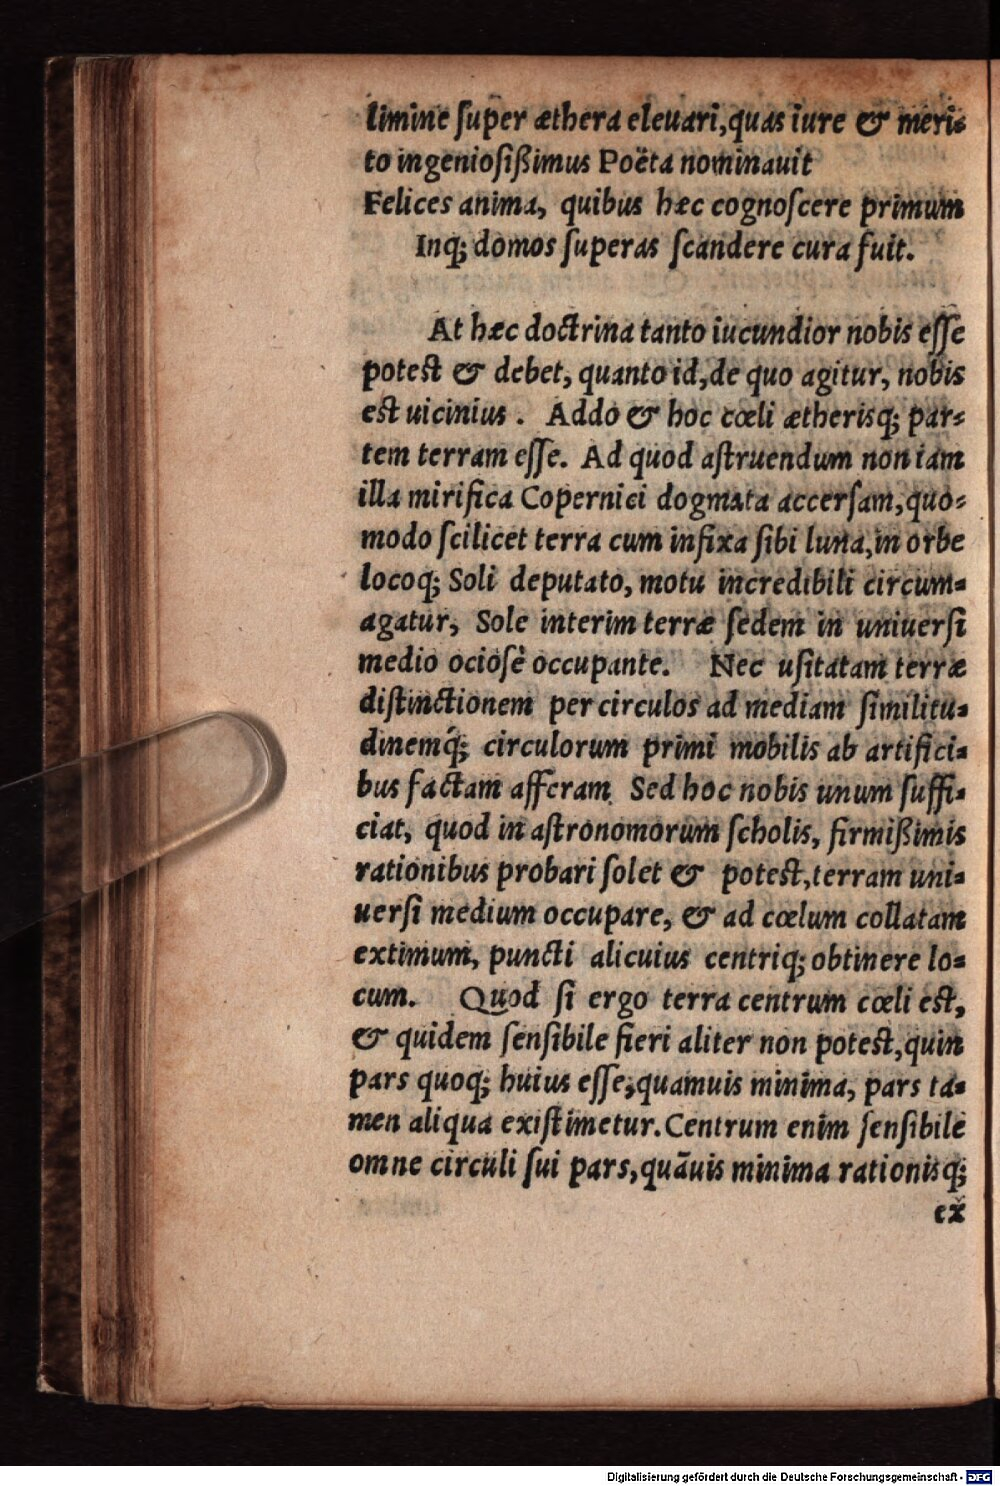 limine ſuper æthera eleuari, quas iure & meri-
to ingenioſißimus Poëta nominauit
Felices anima, quibus hæc cognoſcere primum
Inq; domos ſuperas ſcandere cura fuit.
At hæc doctrina tanto iucundior nobis eſſe
potest & debet, quanto id, de quo agitur, nobis
est uicinius. Addo & hoc cœli ætherisq; par-
tem terram eſſe. Ad quod aſtruendum non iam
illa mirifica Copernici dogmata accerſam, quo-
modo ſcilicet terra cum infixa ſibi luna, in orbe
locoq; Soli deputato, motu incredibili circum-
agatur, Sole interim terræ ſedem in uniuerſi
medio ocioſè occupante. Nec uſitatam terræ
diſtinctionem per circulos ad mediam ſimilitu-
dinemq́; circulorum primi mobilis ab artifici-
bus factam afferam. Sed hoc nobis unum ſuffi-
ciat, quod in aſtronomorum ſcholis, firmißimis
rationibus probari ſolet & potest, terram uni-
uerſi medium occupare, & ad cœlum collatam
extimum, puncti alicuius centriq; obtinere lo-
cum. Quod ſi ergo terra centrum cœli est,
& quidem ſenſibile fieri aliter non potest, quin
pars quoq; huius eſſe, quamuis minima, pars ta-
men aliqua exiſtimetur. Centrum enim ſenſibile
omne circuli ſui pars, quãuis minima rationisq;
ex
Digitalisierung gefördert durch die Deutsche Forschungsgemeinschaft - DFG